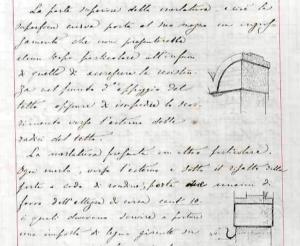 La parte superiore della merlatura, e cioè la
superficie curva porta al suo mezzo un ingros
samento che non presenterebbe
alcun scopo particolare all'infuori
di quello di accrescere la resisten
za nel punto d'appoggio del
tetto, oppure di impedire lo scor
rimento verso l'esterno delle
radici del tetto.
La merlatura presenta un altro particolare.
Ogni merlo, verso l'esterno e sotto il risvolto della
forte a coda di rondine, porta due uncini di
ferro dell'altezza di circa cent. 10
i quali dovevano servire a portare
una imposta di legno girevole su